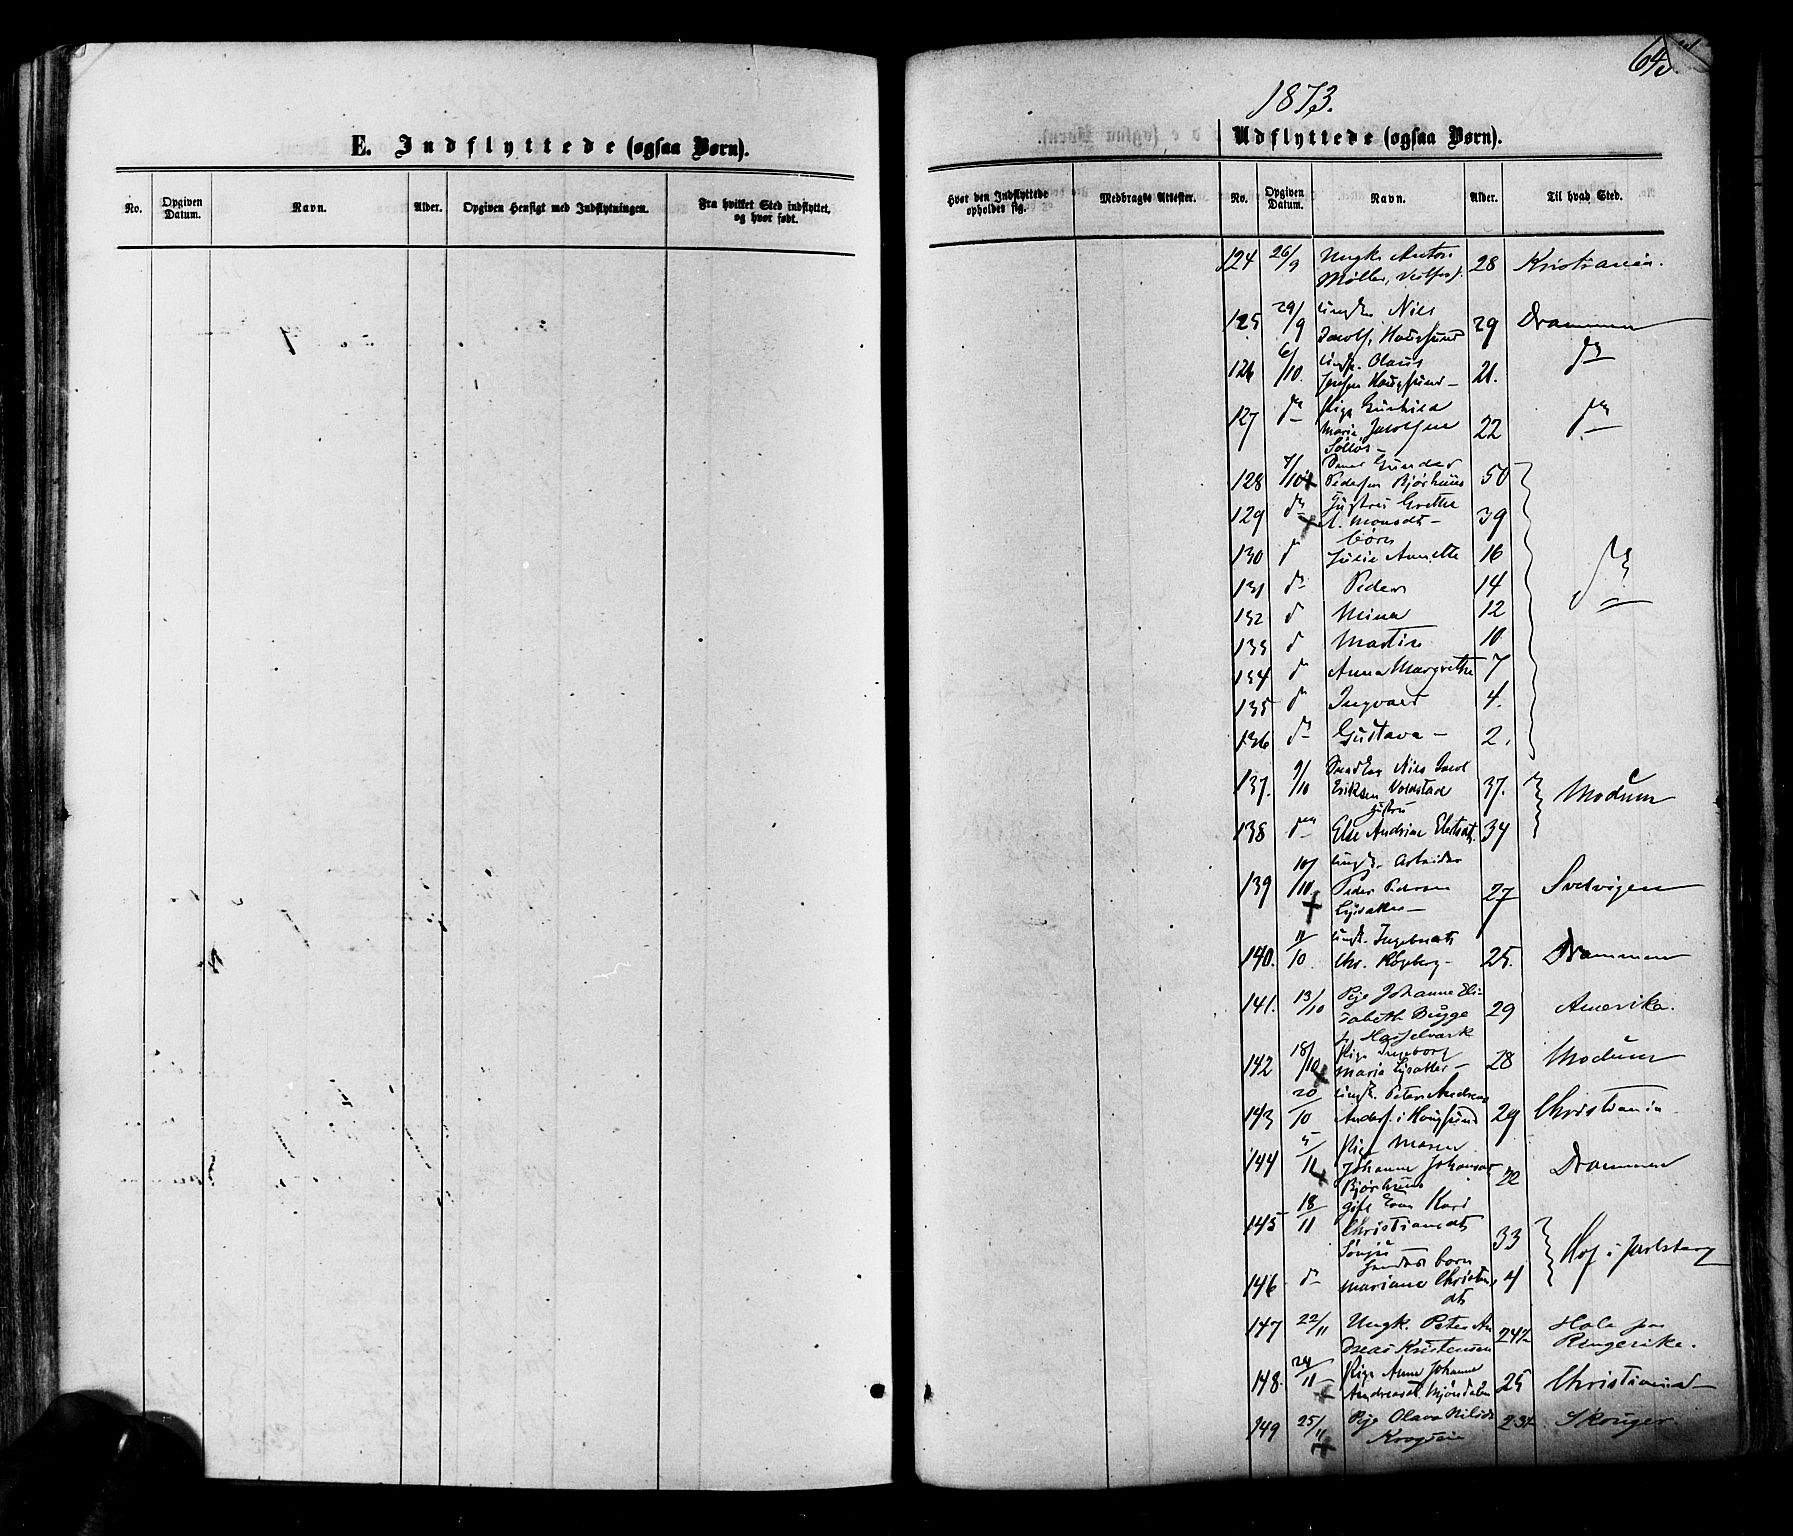 E. Indflyttede (ogsaa Børn).
No.
Opgiven Datum.
Navn.
Alder.
Opgiven Hensigt med Indflytningen.
Fra hvilket Sted indflyttet, og hvor født.
1873.
Udflyttede (ogsaa Børn).
Hvor den Indflyttede opholder sig.
Medbragte Attester.
No.
Opgiven Datum.
Navn.
Alder.
Til hvad Sted.
124 26/9 Ungk. Anton
Møller, 28 Kristiania.
125 29/9 Ungk. Niels
Jacobs. Hougsund 29 Drammen
126 6/10. Ungk. Olaus
Jensen Hougsund - 21. do
127 do Pige Gunhild
Maria Jacobsen 22 do
128 7/10 + Gunder
Pedersen Bjørhuus 50
129 do + Hustru Grethe
A. Monsdt - 39
børn
130 do Julie Annette 16 do
131 do Peder 14
132 do Mina 12
133 do Martin 10
134 do Anna Margrethe 7
135 do Ingvard 4.
136 do Gustava - 2.
137. 9/10 Niels Jacob
Eriksen Voldstad 37. Modum
Hustru
138 do Else Andrine 34
139 10/10 + Ungk. Arbeider
Peder Pedersen 27 Svelvigen
Lysaker -
140. 11/10. Ungk. Ingebret
Chr. 25. Drammen
141. 13/10 Pige Johanne Eli-
sabeth Bugge 29 Amerika.
Hasselværk
142 18/10 + Pige Ingeborg
Maria Lysaker - 28 Modum
143 20/10 Ungk. Peter Andreas
Anders. i Hougsund 29 Christiania
144 5/11 + Pige Maren
Johanne Johansdt 22 Drammen
Bjørhuus
145 18/11 Gift Kari
Christiansdt 33 Hof i Jarlsberg
146 do Mariane Christens 4
dt
147 22/11 Ungk. Peter An
dreas Kristensen 24½ Hole paa
Ringerike.
148. 24/11 + Pige Anne Johanne
Andreasdt Mjøndalen 25 Christiania -
149 25/11 + Pige Olava Nilsdt
23½ Skouger